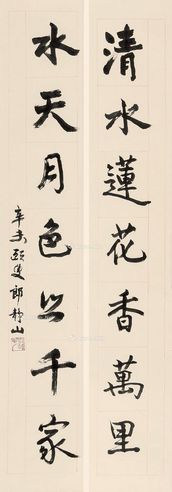 清水蓮花香萬里
水天月色千家
辛未 頤叟 郎靜山